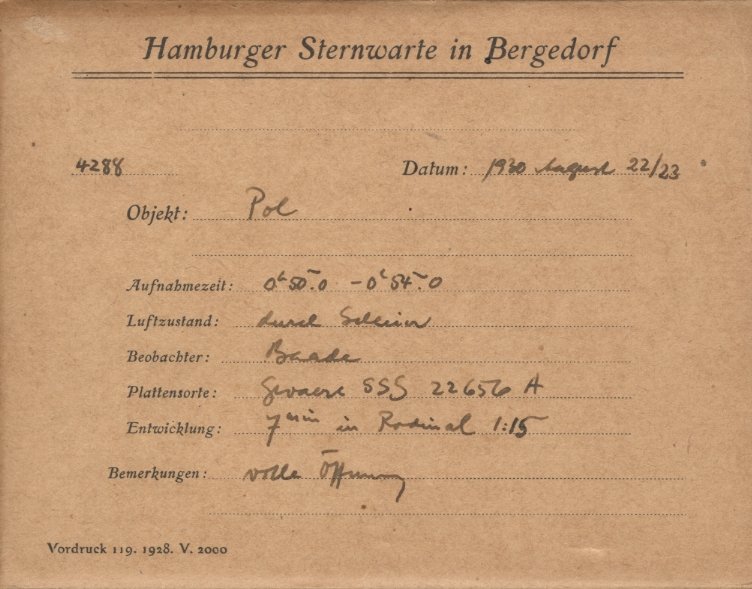 Hamburger Sternwarte in Bergedorf
4288 Datum: 1930 August 22/23
Objekt: Pol
Aufnahmezeit: 0ʰ50ᵐ.0 – 0ʰ54ᵐ.0
Luftzustand: durch Schleier
Beobachter: Baade
Plattensorte: Gevaert SSS 22656 A
Entwicklung: 7ᵐⁱⁿ in Rodinal 1:15
Bemerkungen: volle Öffnung
Vordruck 119. 1928. V. 2000